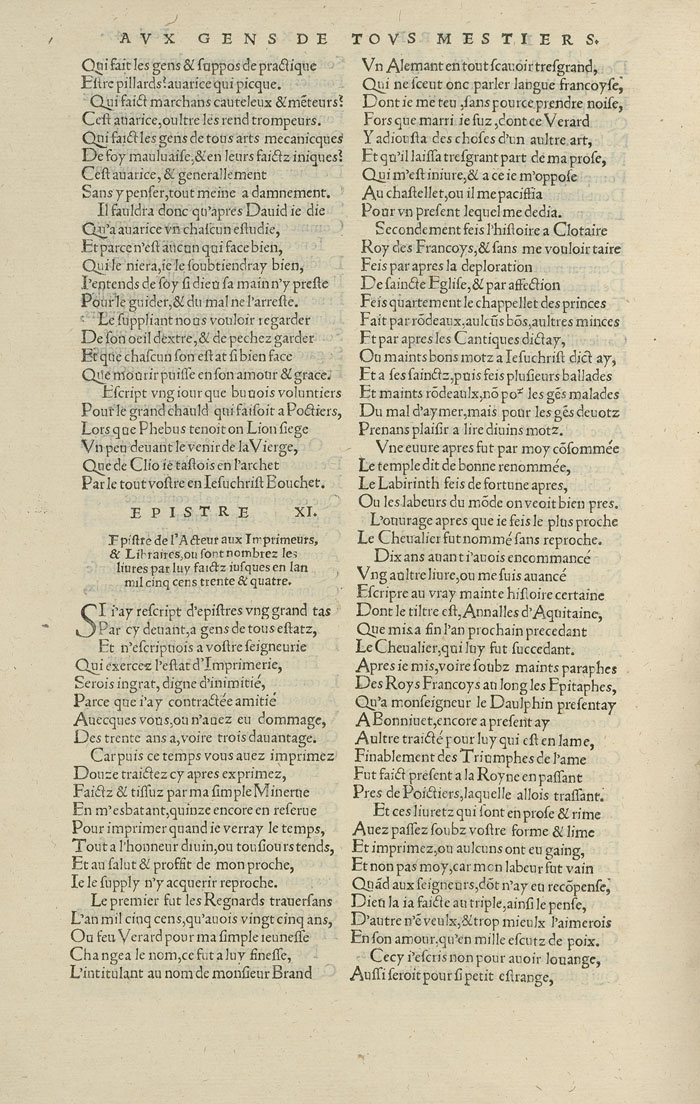 AVX GENS DE TOVS MESTIERS.
Qui fait les gens & suppos de practique
Estre pillards? auarice qui picque.
Qui faict marchans cauteleux & mẽteurs?
C'est auarice, oultre les rend trompeurs.
Qui faict les gens de tous arts mecanicques
De foy mauluaise, & en leurs faictz iniques?
C'est auarice, & generallement
Sans y penser, tout meine a damnement.
Il fauldra donc qu'apres Dauid ie die
Qu'a auarice vn chascun estudie,
Et parce n'est aucun qui face bien,
Qui le niera, ie le soubtiendray bien,
I'entends de soy si dieu sa main n'y preste
Pour le guider, & du mal ne l'arreste.
Le suppliant nous vouloir regarder
De son oeil dextre, & de pechez garder
Et que chascun son estat si bien face
Que mourir puisse en son amour & grace.
Escript vng iour que buuois voluntiers
Pour le grand chauld qui faisoit a Poctiers,
Lors que Phebus tenoit on Lion siege
Vn peu deuant le venir de la Vierge,
Que de Clio ie tastois en l'archet
Par le tout vostre en Iesuchrist Bouchet.
EPISTRE XI.
Epistre de l'Acteur aux Imprimeurs,
& Libraires, ou sont nombrez les
liures par luy faictz iusques en lan
mil cinq cens trente & quatre.
SI i'ay rescript d'epistres vng grand tas
Par cy deuant, a gens de tous estatz,
Et n'escriuois a vostre seigneurie
Qui exercez l'estat d'Imprimerie,
Serois ingrat, digne d'inimitié,
Parce que i'ay contractée amitié
Auecques vous, ou n'auez eu dommage,
Des trente ans a, voire trois dauantage.
Car puis ce temps vous auez imprimez
Douze traictez cy apres exprimez,
Faictz & tissuz par ma simple Minerue
En m'esbatant, quinze encore en reserue
Pour imprimer quand ie verray le temps,
Tout a l'honneur diuin, ou tousiours tends,
Et au salut & proffit de mon proche,
Ie le supply n'y acquerir reproche.
Le premier fut les Regnards trauersans
L'an mil cinq cens, qu'auois vingt cinq ans,
Ou feu Verard pour ma simple ieunesse
Changea le nom, ce fut a luy finesse,
L'intitulant au nom de monsieur Brand
Vn Alemant en tout scauoir tresgrand,
Qui ne sceut onc parler langue francoyse,
Dont ie me teu, sans pource prendre noise,
Fors que marri ie fuz, dont ce Verard
Y adiousta des choses d'un aultre art,
Et qu'il laissa tresgrant part de ma prose,
Qui m'est iniure, & a ce ie m'oppose
Au chastellet, ou il me pacifia
Pour vn present lequel me dedia.
Secondement feis l'histoire a Clotaire
Roy des Francoys, & sans me vouloir taire
Feis par apres la deploration
De saincte Eglise, & par affection
Feis quartement le chappellet des princes
Fait par rõdeaux, aulcũs bõs, aultres minces
Et par apres les Cantiques dictay,
Ou maints bons motz a Iesuchrist dict ay,
Et a ses sainctz, puis feis plusieurs ballades
Et maints rõdeaulx, nõ poʳ les gẽs malades
Du mal d'aymer, mais pour les gẽs deuotz
Prenans plaisir a lire diuins motz.
Vne euure apres fut par moy cõsommée
Le temple dit de bonne renommée,
Le Labirinth feis de fortune apres,
Ou les labeurs du mõde on veoit bien pres.
L'ouurage apres que ie feis le plus proche
Le Cheualier fut nommé sans reproche.
Dix ans auant i'auois encommancé
Vng aultre liure, ou me suis auancé
Escripre au vray mainte histoire certaine
Dont le tiltre est, Annalles d'Aquitaine,
Que mis a fin l'an prochain precedant
Le Cheualier, qui luy fut succedant.
Apres ie mis, voire soubz maints paraphes
Des Roys Francoys au long les Epitaphes,
Qu'a monseigneur le Daulphin presentay
A Bonniuet, encore a present ay
Aultre traicté pour luy qui est en lame,
Finablement des Triumphes de l'ame
Fut faict present a la Royne en passant
Pres de Poictiers, laquelle allois trassant.
Et ces liuretz qui sont en prose & rime
Auez passez soubz vostre forme & lime
Et imprimez, ou aulcuns ont eu gaing,
Et non pas moy, car mon labeur fut vain
Quãd aux seigneurs, dõt n'ay eu recõpense,
Dieu la ia faicte au triple, ainsi le pense,
D'autre n'ẽ veulx, & trop mieulx l'aimerois
En son amour, qu'en mille escutz de poix.
Cecy i'escris non pour auoir louange,
Aussi seroit pour si petit estrange,